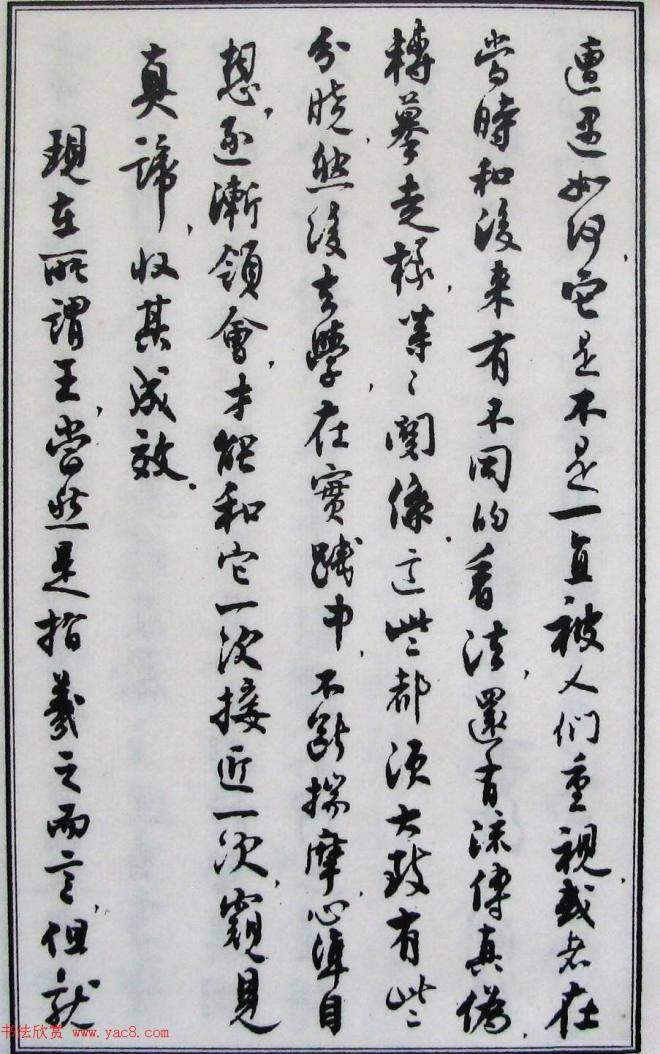 遭遇如何，它是不是一直被人们重視，或者在
當時和後来有不同的看法，還有流傳真偽，
轉摹走樣，業〻関係，這些都須大致有些
分曉，然後去學，在實踐中，不斷揣摩，心準目
想，逐漸領會，才能和它一次接近一次，窺見
真諦，收其成效．
現在所謂王，當然是指羲之而言，但就
书法欣赏 www.yac8.com